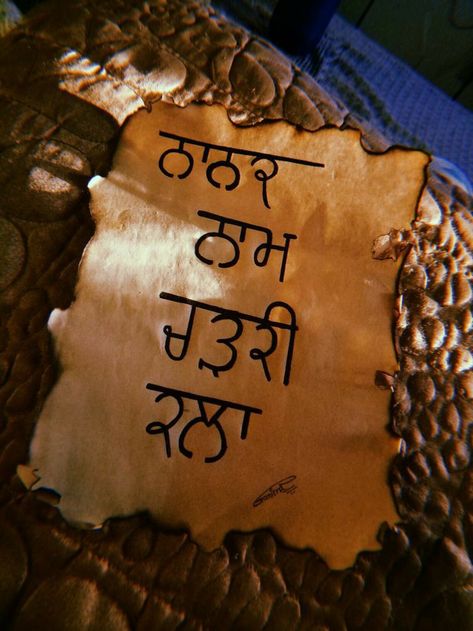 ਨਾਨਕ
ਨਾਮ
ਚੜਦੀ
ਕਲਾ